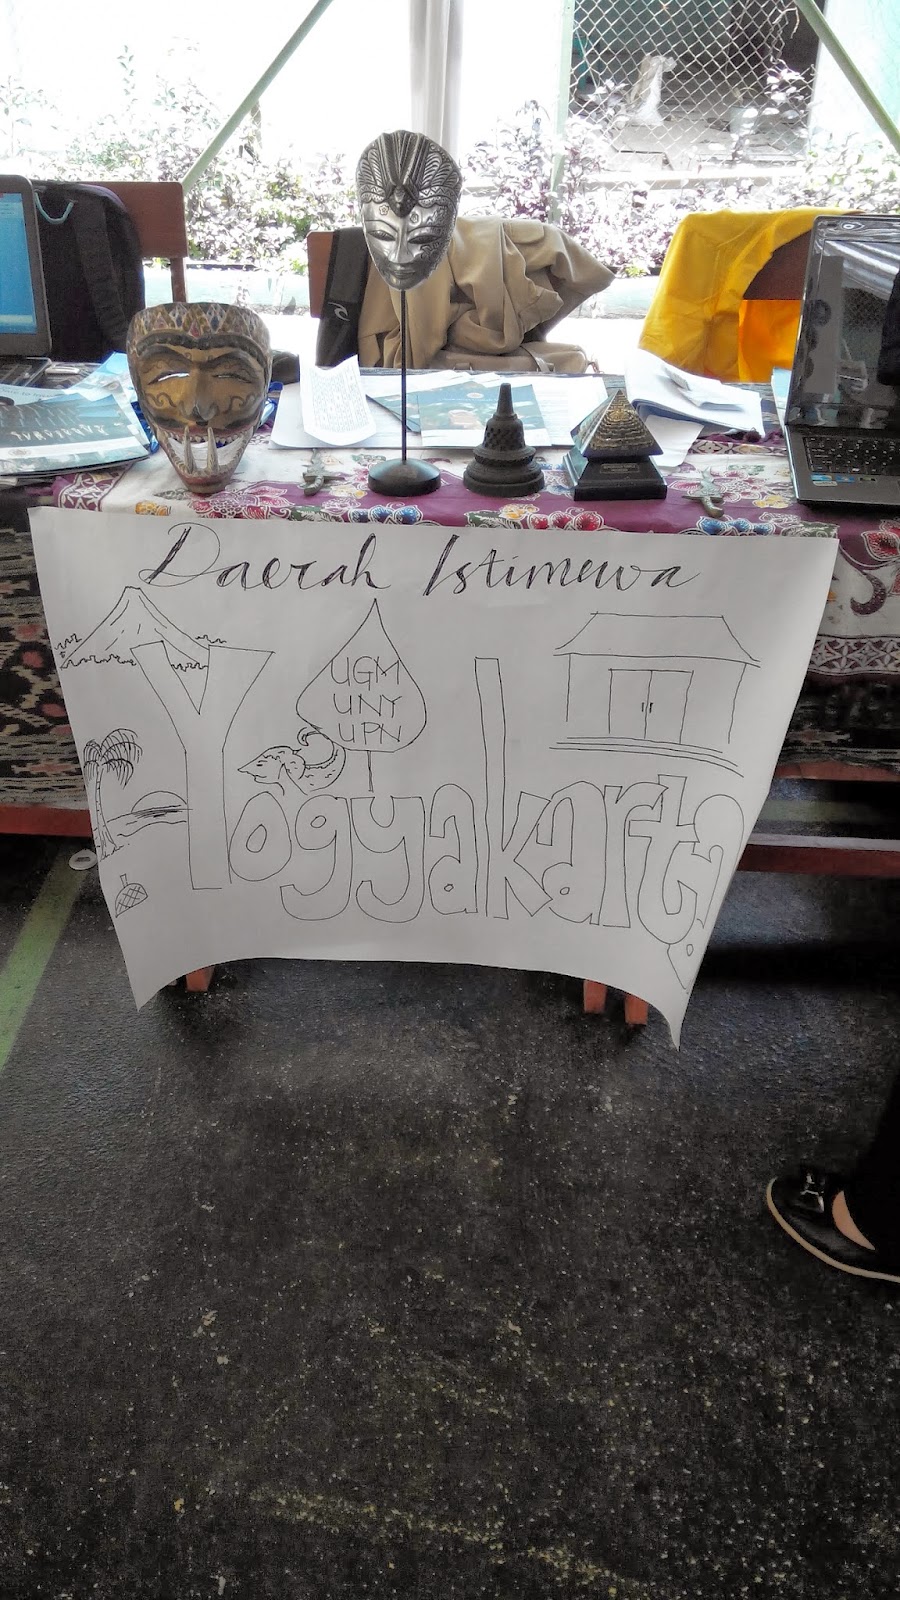 Daerah Istimewa
UGM
UNY
UPN
Yogyakarta